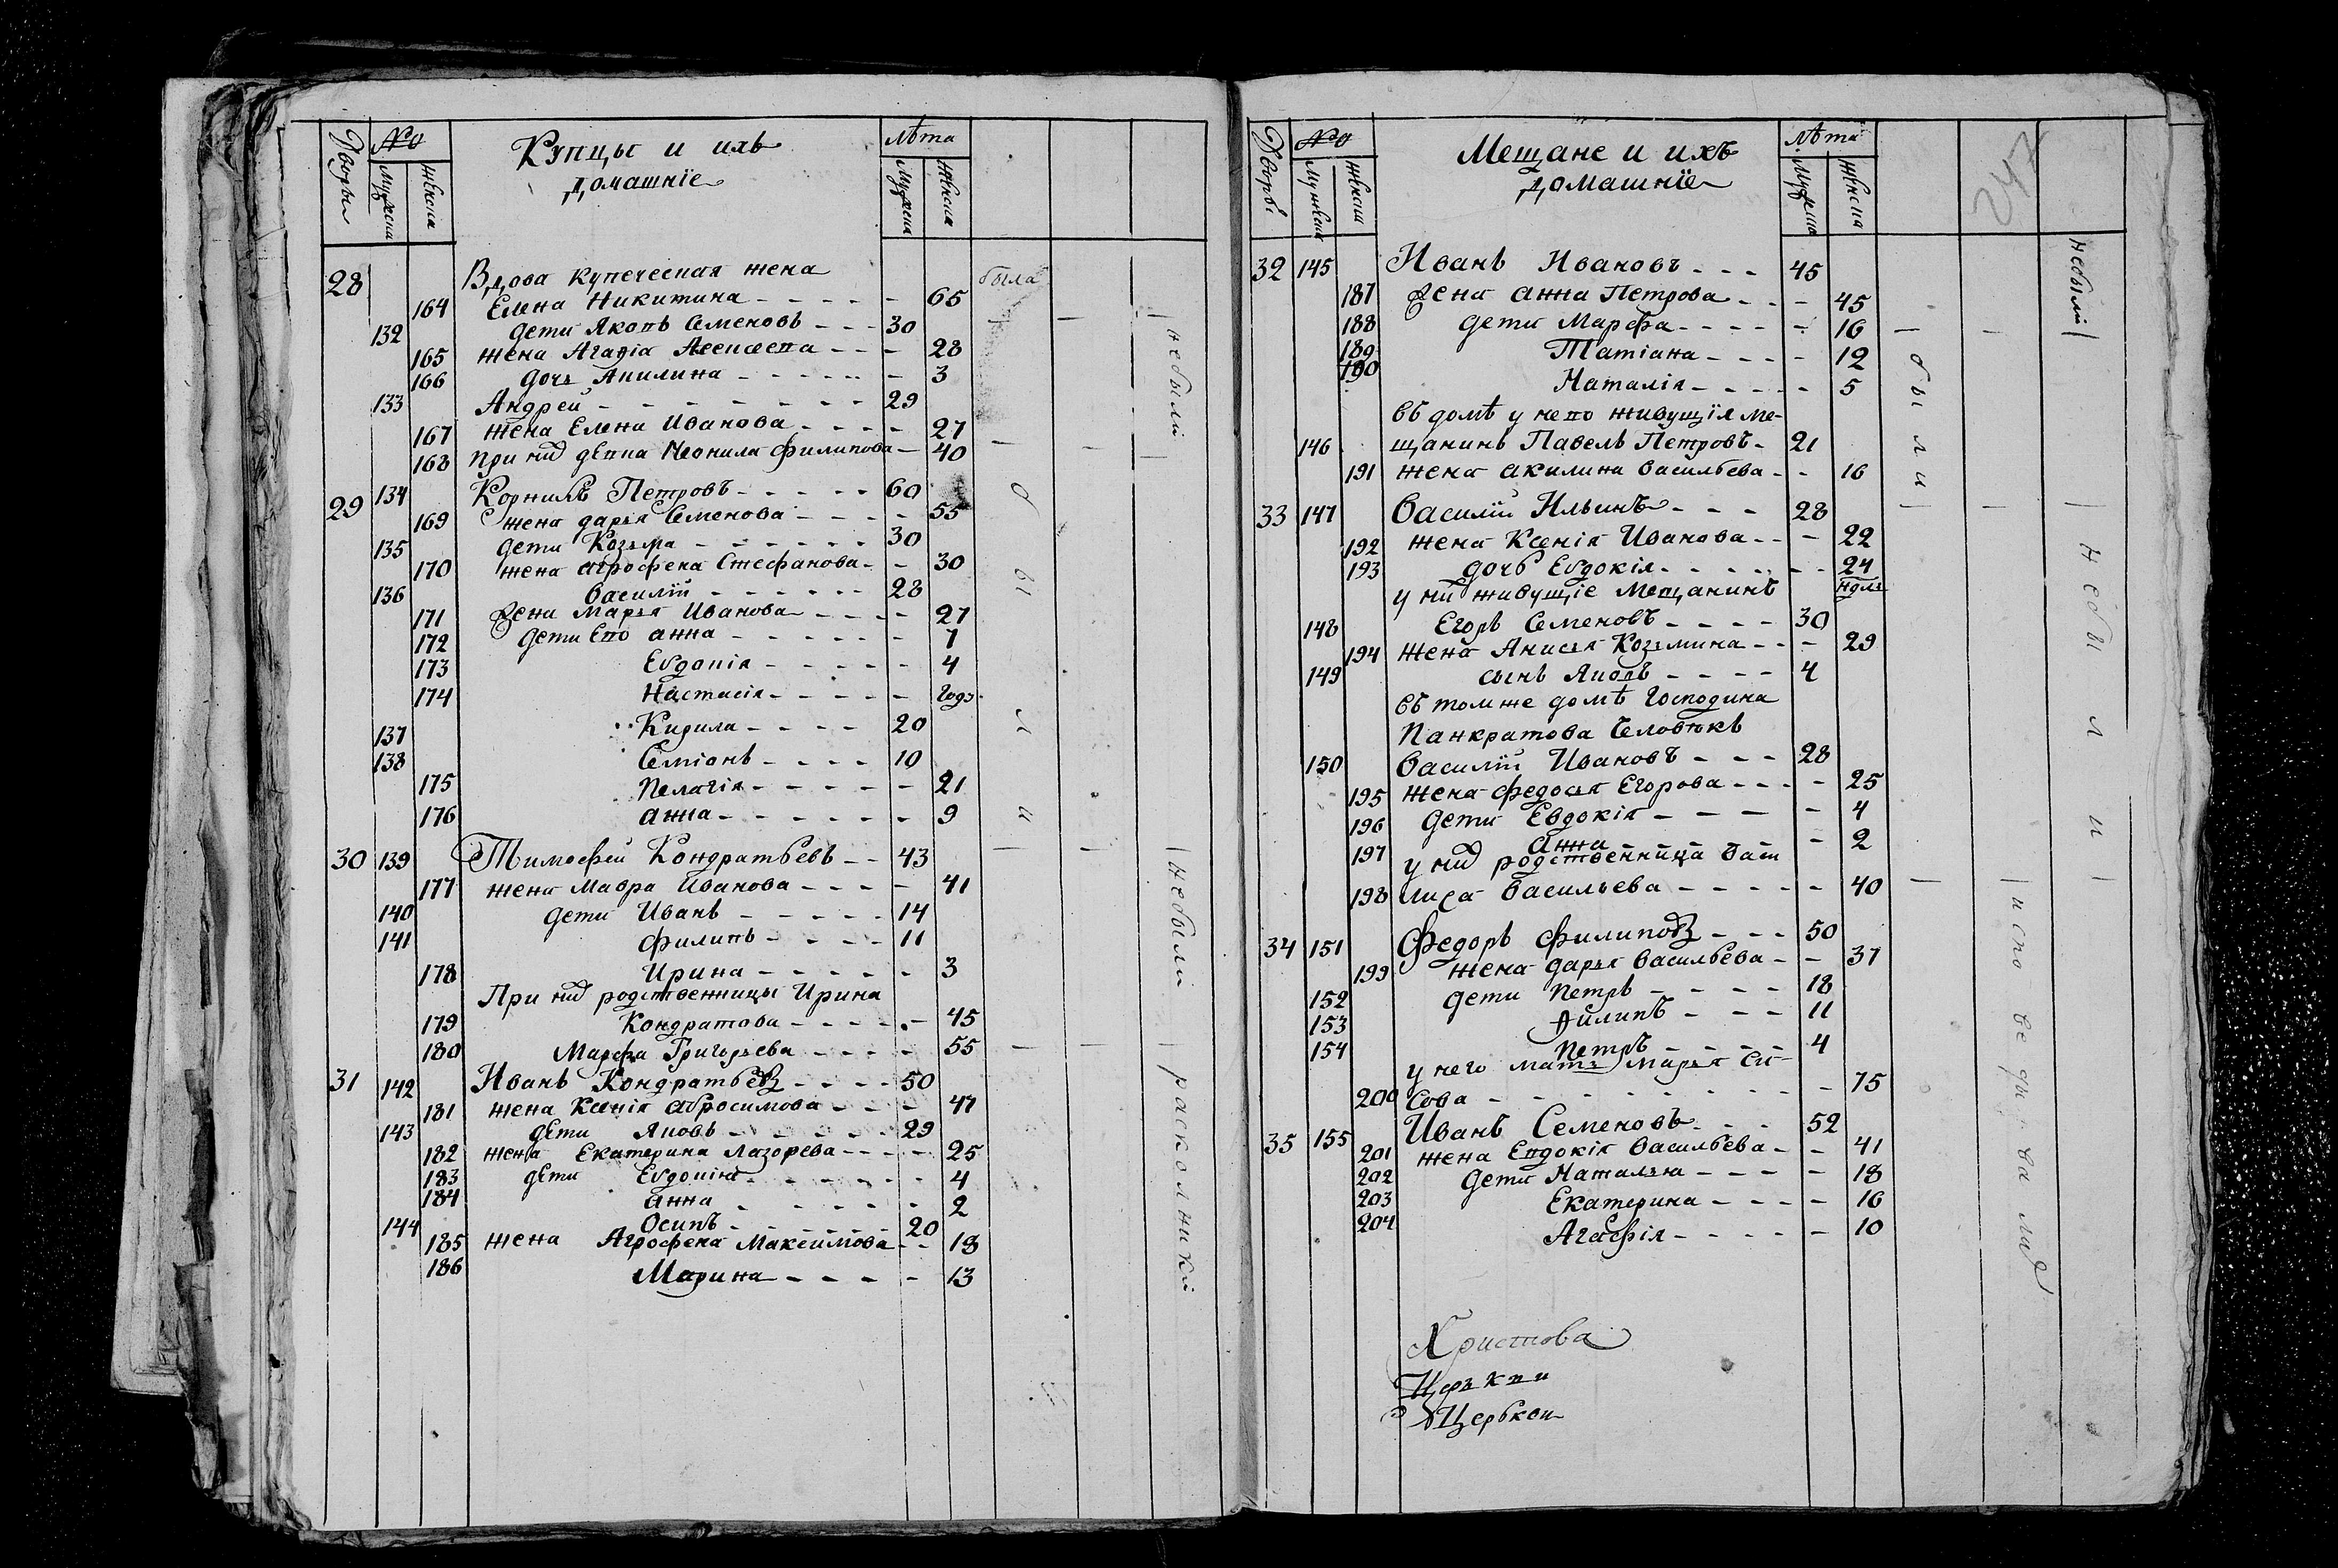 Дворы № Купцы и ихъ лѣта
домашніе
Мужеска Женска Мужеска Женска
28 Вдова купеческая жена была
164 Елена Никитина - - - - - 65
132 дети Яковъ Семеновъ - - - 30
165 жена Агафіа - - - 28
166 дочь Акилина - - - - - - 3
133 Андрей - - - - - - - - 29
167 жена Елена Иванова - - - - - 27
168 при ней девка Неонила Филипова - 40
небыли
29 134 Корнилъ Петровъ - - - - - 60
169 жена дарья Семенова - - - - - 55
135 дети Козьма - - - - - - 30
170 жена агрофена Стефанова - - 30
136 Василій - - - - - - 28
171 Жена Марья Иванова - - - - - 27
172 дети Его анна - - - - - - 7
173 Евдокія - - - - - - 4
174 Настасія - - - - - - Годъ
137 Кирила - - - - 20
138 Семіонъ - - - - 10
175 Пелагія - - - - - - 21
176 анна - - - - - - - 9
были
30 139 Тимофей Кондратьевъ - - 43
177 жена Мавра Иванова - - - - 41
140 дети Иванъ - - - - - 14
141 филипъ - - - - 11
178 Ирина - - - - - - 3
При ней родственницы Ирина
179 Кондратова - - - - - - 45
180 Марфа Григорьева - - - - 55
небыли
31 142 Иванъ Кондратьевъ - - - - 50
181 жена Ксенія абросимова - - - - 47
143 дети Яковъ - - - - - - 29
182 жена Екатерина Лазорева - - - - 25
183 дети Евдокіа - - - - - - - 4
184 анна - - - - - - 2
144 Осипъ - - - - - - 20
185 жена Агрофена Максимова - - 18
186 Марина - - - - - 13
расколники
Дворы № Мещане и ихъ лѣта
домашніе
Мужеска Женска Мужеска Женска
32 145 Иванъ Ивановъ - - - 45
небыли
187 Жена анна Петрова - - - 45
188 дети Марфа - - - - - 16
189 Татіана - - - - 12
190 Наталія - - - - - 5
въ домѣ у него живущія ме-
146 щанинъ Павелъ Петровъ - 21
191 жена акилина васильева - - 16
были
33 147 Василій Ильинъ - - - 28
192 жена Ксенія Иванова - - - 22
193 дочь Евдокія - - - - - - 24
у ней живущіе Мещанинъ ндль
148 Егоръ Семеновъ - - - - 30
194 жена Анисья Козьмина - - - 29
149 сынъ Яковъ - - - - 4
въ томже домѣ Господина
Панкратова Человѣкъ
150 Василій Ивановъ - - - 28
195 жена федосья Егорова - - - - 25
196 дети Евдокія - - - - 4
197 Анна - - - - 2
у ней родственница Васи
198 лиса Васильева - - - - - 40
небыли
34 151 Федоръ филиповъ - - - 50
199 жена дарья васильева - - 37
152 дети Петръ - - - - 18
153 филипъ - - - 11
154 Петръ - - - - 4
у него мать Марья Си-
200 сова - - - - - - - - - 75
35 155 Иванъ Семеновъ - - - 52
201 жена Евдокія Васильева - - 41
202 дети Наталья - - - - 18
203 Екатерина - - - - 16
204 Агафія - - - - - 10
Христова
Церькви
Церькви